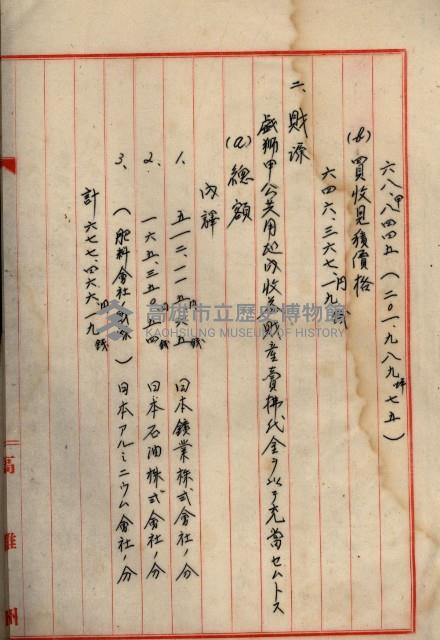 六八甲八四四五(二〇一.九八九坪七五)
(b) 買收見積價格
六四六.三六七円一九銭
二、財源
戯獅甲公共用地内收益財產賣拂代金ヲ以テ充當セムトス
(a) 總額
内譯
1. 五一二.一一五円六五銭 日本鑛業株式會社ノ分
2. 一六五.三五〇円五四銭 日本石油株式會社ノ分
3. (肥料會社) 日本アルミニウム會社ノ分
計 六七七四六六円一九銭
高雄州
高雄市立歷史博物館
KAOHSIUNG MUSEUM OF HISTORY